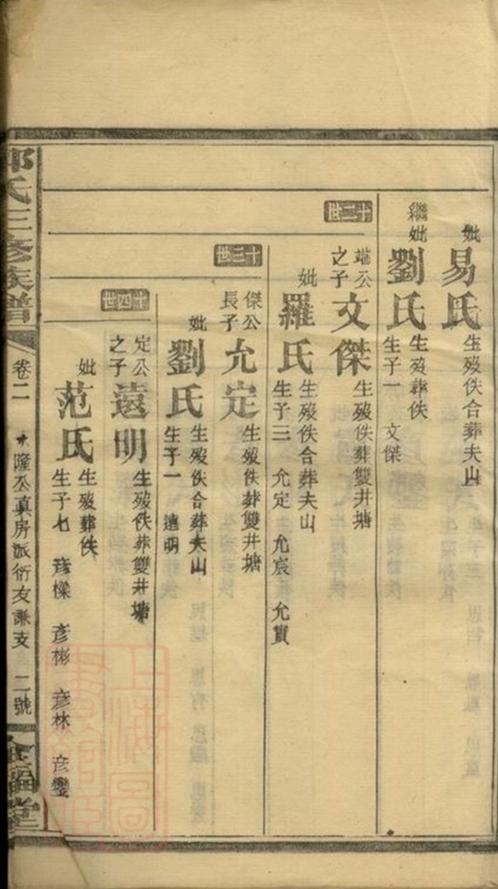 妣易氏生歿佚合葬夫山
繼妣劉氏生歿葬佚
生子一 文傑
十二世
端公之子文傑生歿佚葬雙井塘
妣羅氏生歿佚合葬夫山
生子三 允定 允宸 允實
十三世
傑公長子允定生歿佚葬雙井塘
妣劉氏生歿佚合葬夫山
生子一 遠明
十四世
定公之子遠明生歿佚葬雙井塘
妣范氏生歿葬佚
生子七 彦樑 彦彬 彦林 彦鑾
郭氏三修族譜
卷二
隆公真房派衍友謙支
二號
堂